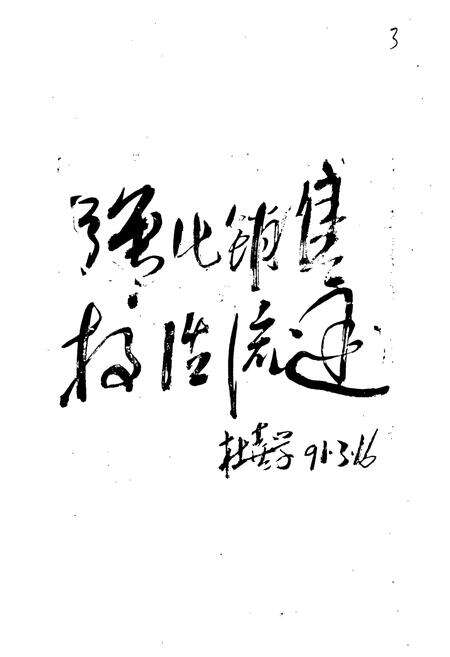 3
强化销售
搞活流通
杜喜学 91.3.16